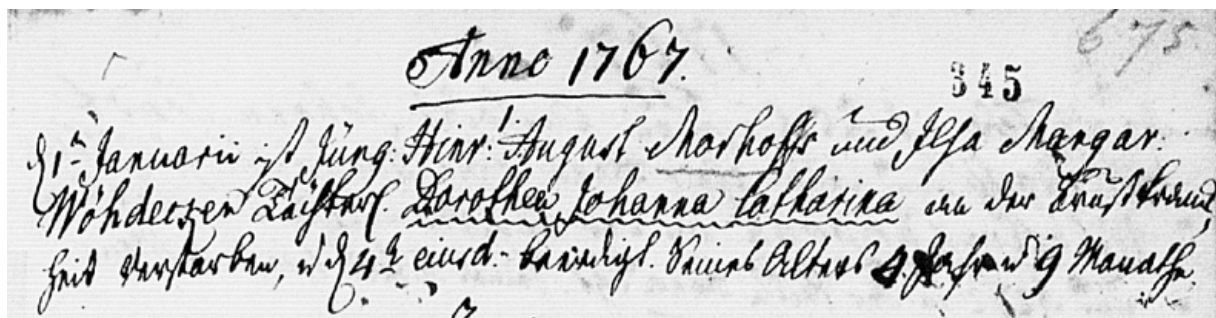 675
Anno 1767.
345
d 1ten Januarii ist Jürg: Hinr: August Morhoffs und Ilsa Margar:
Wöhdeczen Töchterl. Dorothea Johanna Catharina an der Brustkranck
heit verstorben, u d 4te eiusd. beerdigt. Seines Alters 4. Jahr u 9 Monathe